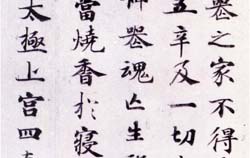 喪之家不得
五辛及一切
神喪魂亡生
當燒香扵寢
太極上宮四